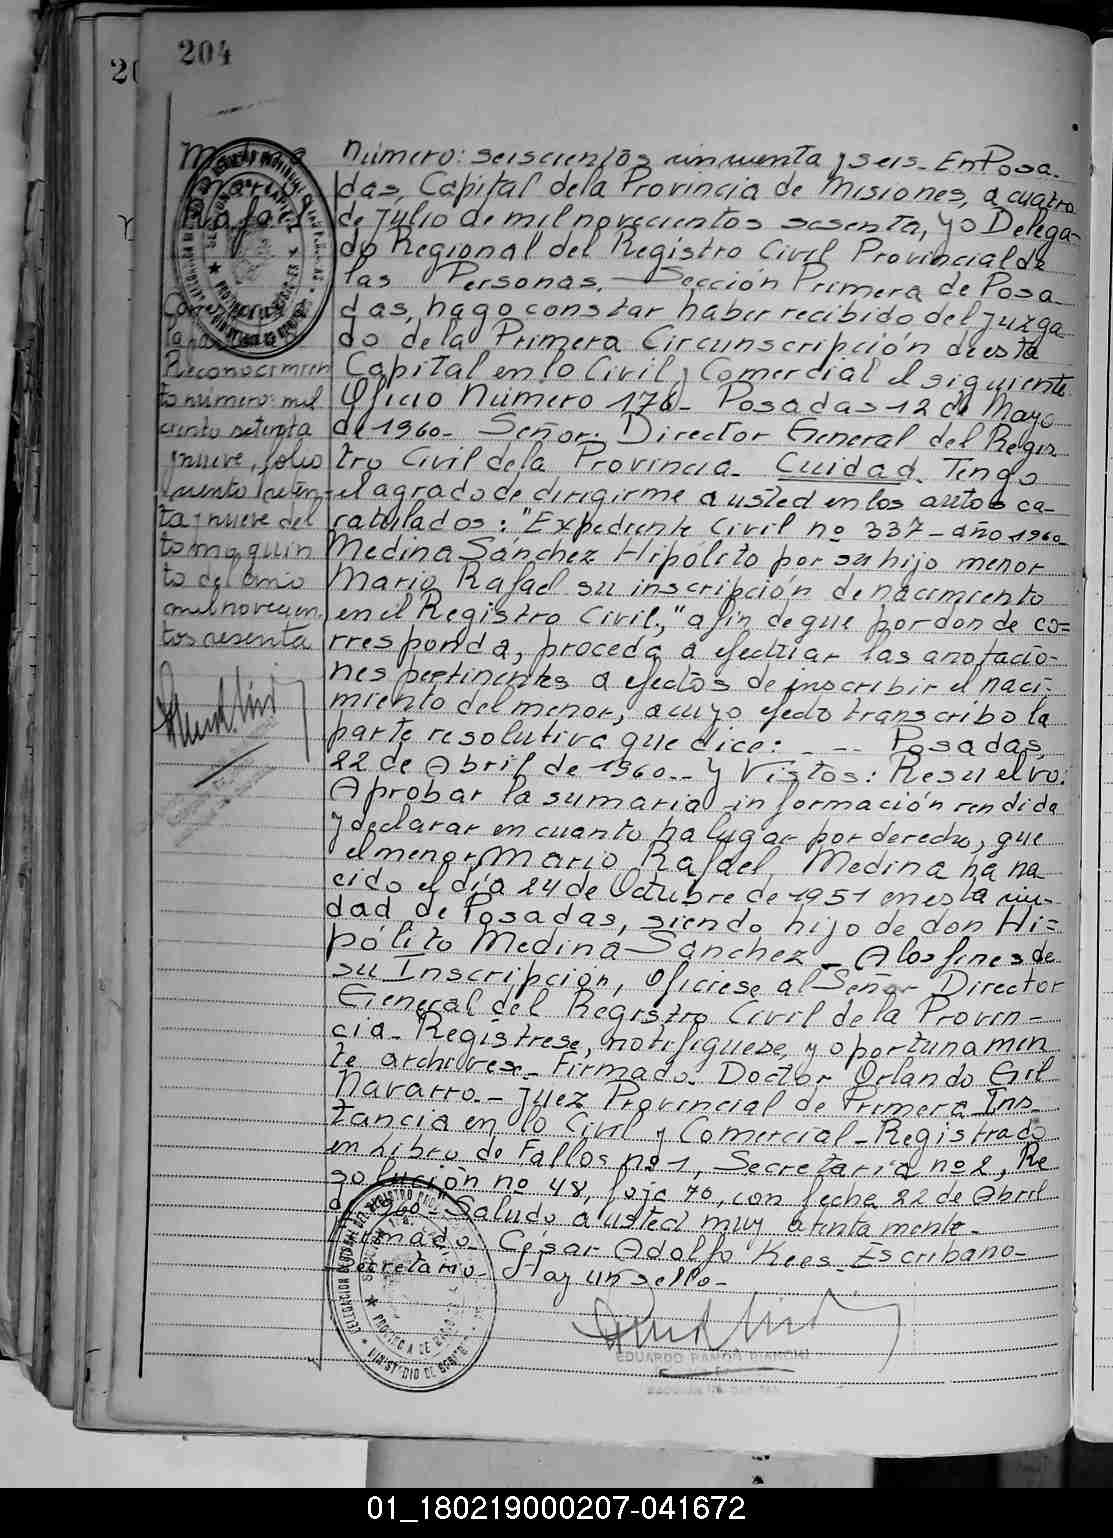 204
Medina
Mario
Rafael
Reconocimien
to número: mil
ciento setenta
y nueve, folio
ciento seten-
ta y nueve del
tomo quin
to del año
mil novecien
tos sesenta
Número: seiscientos cincuenta y seis. En Posa-
das, Capital de la Provincia de Misiones, a cuatro
de Julio de mil novecientos sesenta, yo Delega-
do Regional del Registro Civil Provincial de
las Personas. Sección Primera de Posa-
das, hago constar haber recibido del Juzga-
do de la Primera Circunscripción de esta
Capital en lo Civil y Comercial el siguiente:
Oficio Número 176- Posadas 12 de Mayo
de 1960- Señor: Director General del Regis
tro Civil de la Provincia. Cuidad. Tengo
el agrado de dirigirme a usted en los autos ca-
ratulados: "Expediente Civil nº 337- año 1960-
Medina Sánchez Hipólito por su hijo menor
Mario Rafael su inscripción de nacimiento
en el Registro Civil," a fin de que por donde co=
rresponda, proceda a efectuar las anotacio-
nes pertinentes a efectos de inscribir el naci-
miento del menor, a cuyo efecto transcribo la
parte resolutiva que dice: - -- Posadas,
22 de Abril de 1960.- Y Vistos: Resuelvo:
Aprobar la sumaria información rendida
y declarar en cuanto ha lugar por derecho, que
el menor Mario Rafael, Medina ha na
cido el día 24 de Octubre de 1951 en esta ciu-
dad de Posadas, siendo hijo de don Hi=
pólito Medina Sánchez - A los fines de
su Inscripción, Ofíciese al Señor Director
General del Registro Civil de la Provin-
cia- Regístrese, notifíquese, y oportunamen
te archívese- Firmado- Doctor Orlando Gil
Navarro.- Juez Provincial de Primera Ins-
tancia en lo Civil y Comercial- Registrado
en Libro de Fallos nº 1, Secretaría nº 2, Re
solución nº 48, foja 70, con fecha 22 de Abril
de 1960" Saludo a usted muy atentamente-
Firmado- César Adolfo Kees- Escribano-
Secretario- Hay un sello-
EDUARDO RAMON BIANCHI
01_180219000207-041672